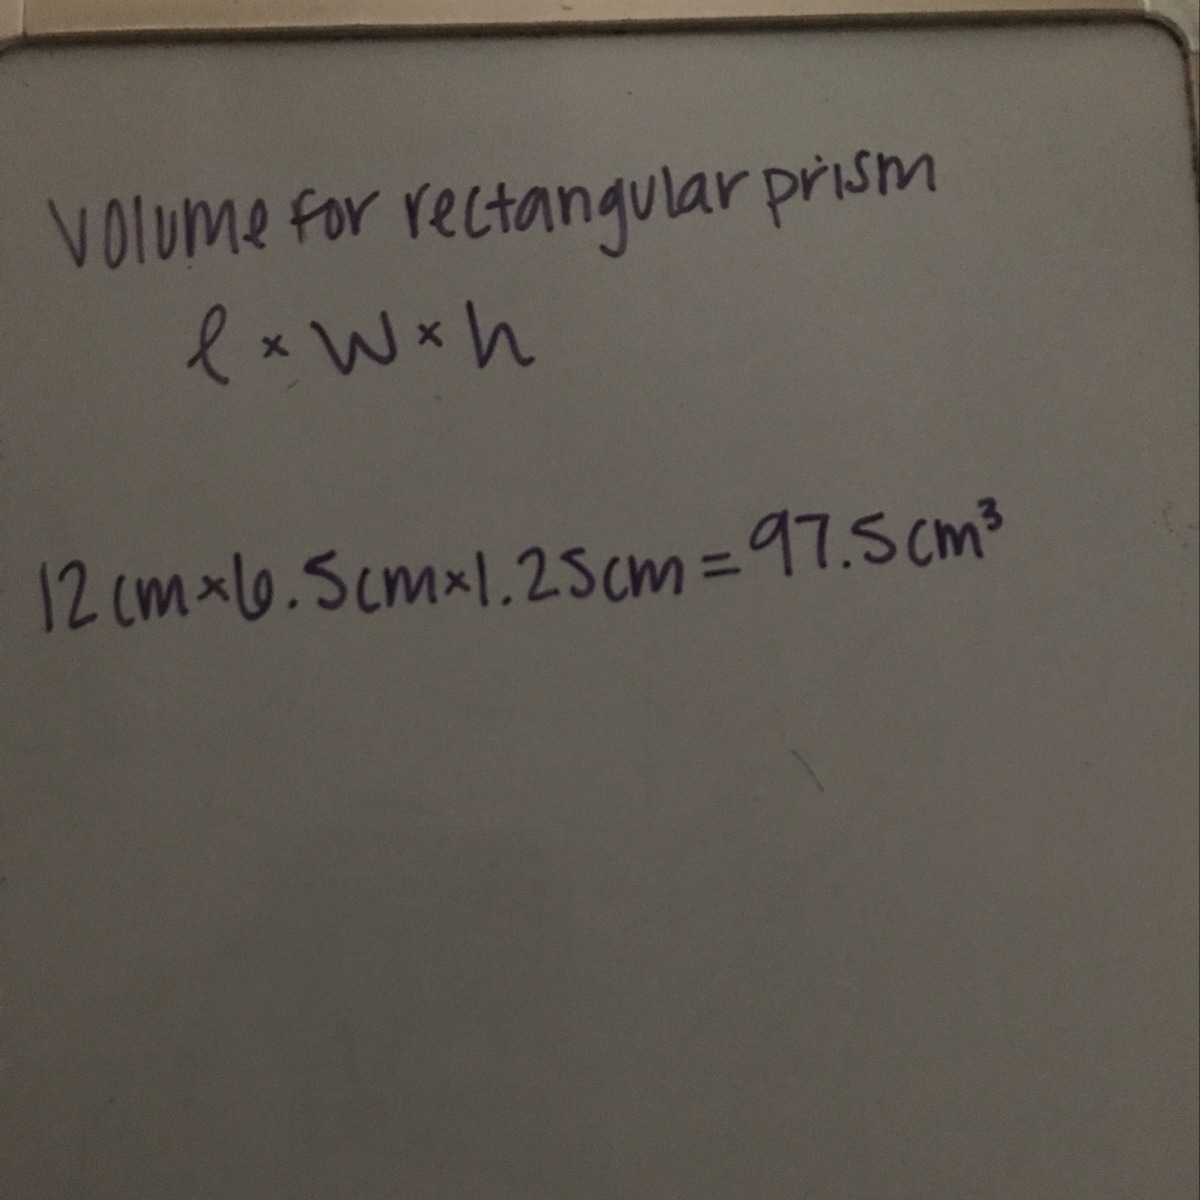 Volume for rectangular prism
l × w × h
12cm×6.5cm×1.25cm=97.5cm³